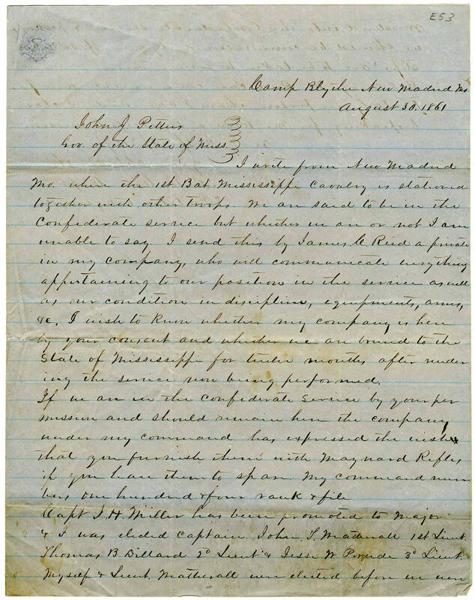 E53
Camp Blythe New Madrid Mo
August 30, 1861
John J Pettus
Gov. of the State of Miss
I write from New Madrid
Mo. where the 1st Bat. Mississippi Cavalry is stationed
together with other troops. We are said to be in the
Confederate service but whether we are or not I am
unable to say. I send this by James C Reid a private
in my company, who will communicate everything
appertaining to our position in the service as well
as our condition in discipline, equipments, arms,
&c. I wish to know whether my company is here
by your consent and whether we are bound to the
State of Mississippi for twelve months after render
ing the service now being performed.
If we are in the Confederate Service by your per
mission and should remain here the company
under my command has expressed the wish
that you furnish them with Maynard Rifles
if you have them to spare. My command num
bers one hundred & four rank & file
Capt J. H. Miller has been promoted to Major
& I was elected Captain John S. Matherall 1st Lieut
Thomas B Dillard 2d Lieut & Jesse W 3d Lieut
Myself & Lieut. Matherall were elected before we were